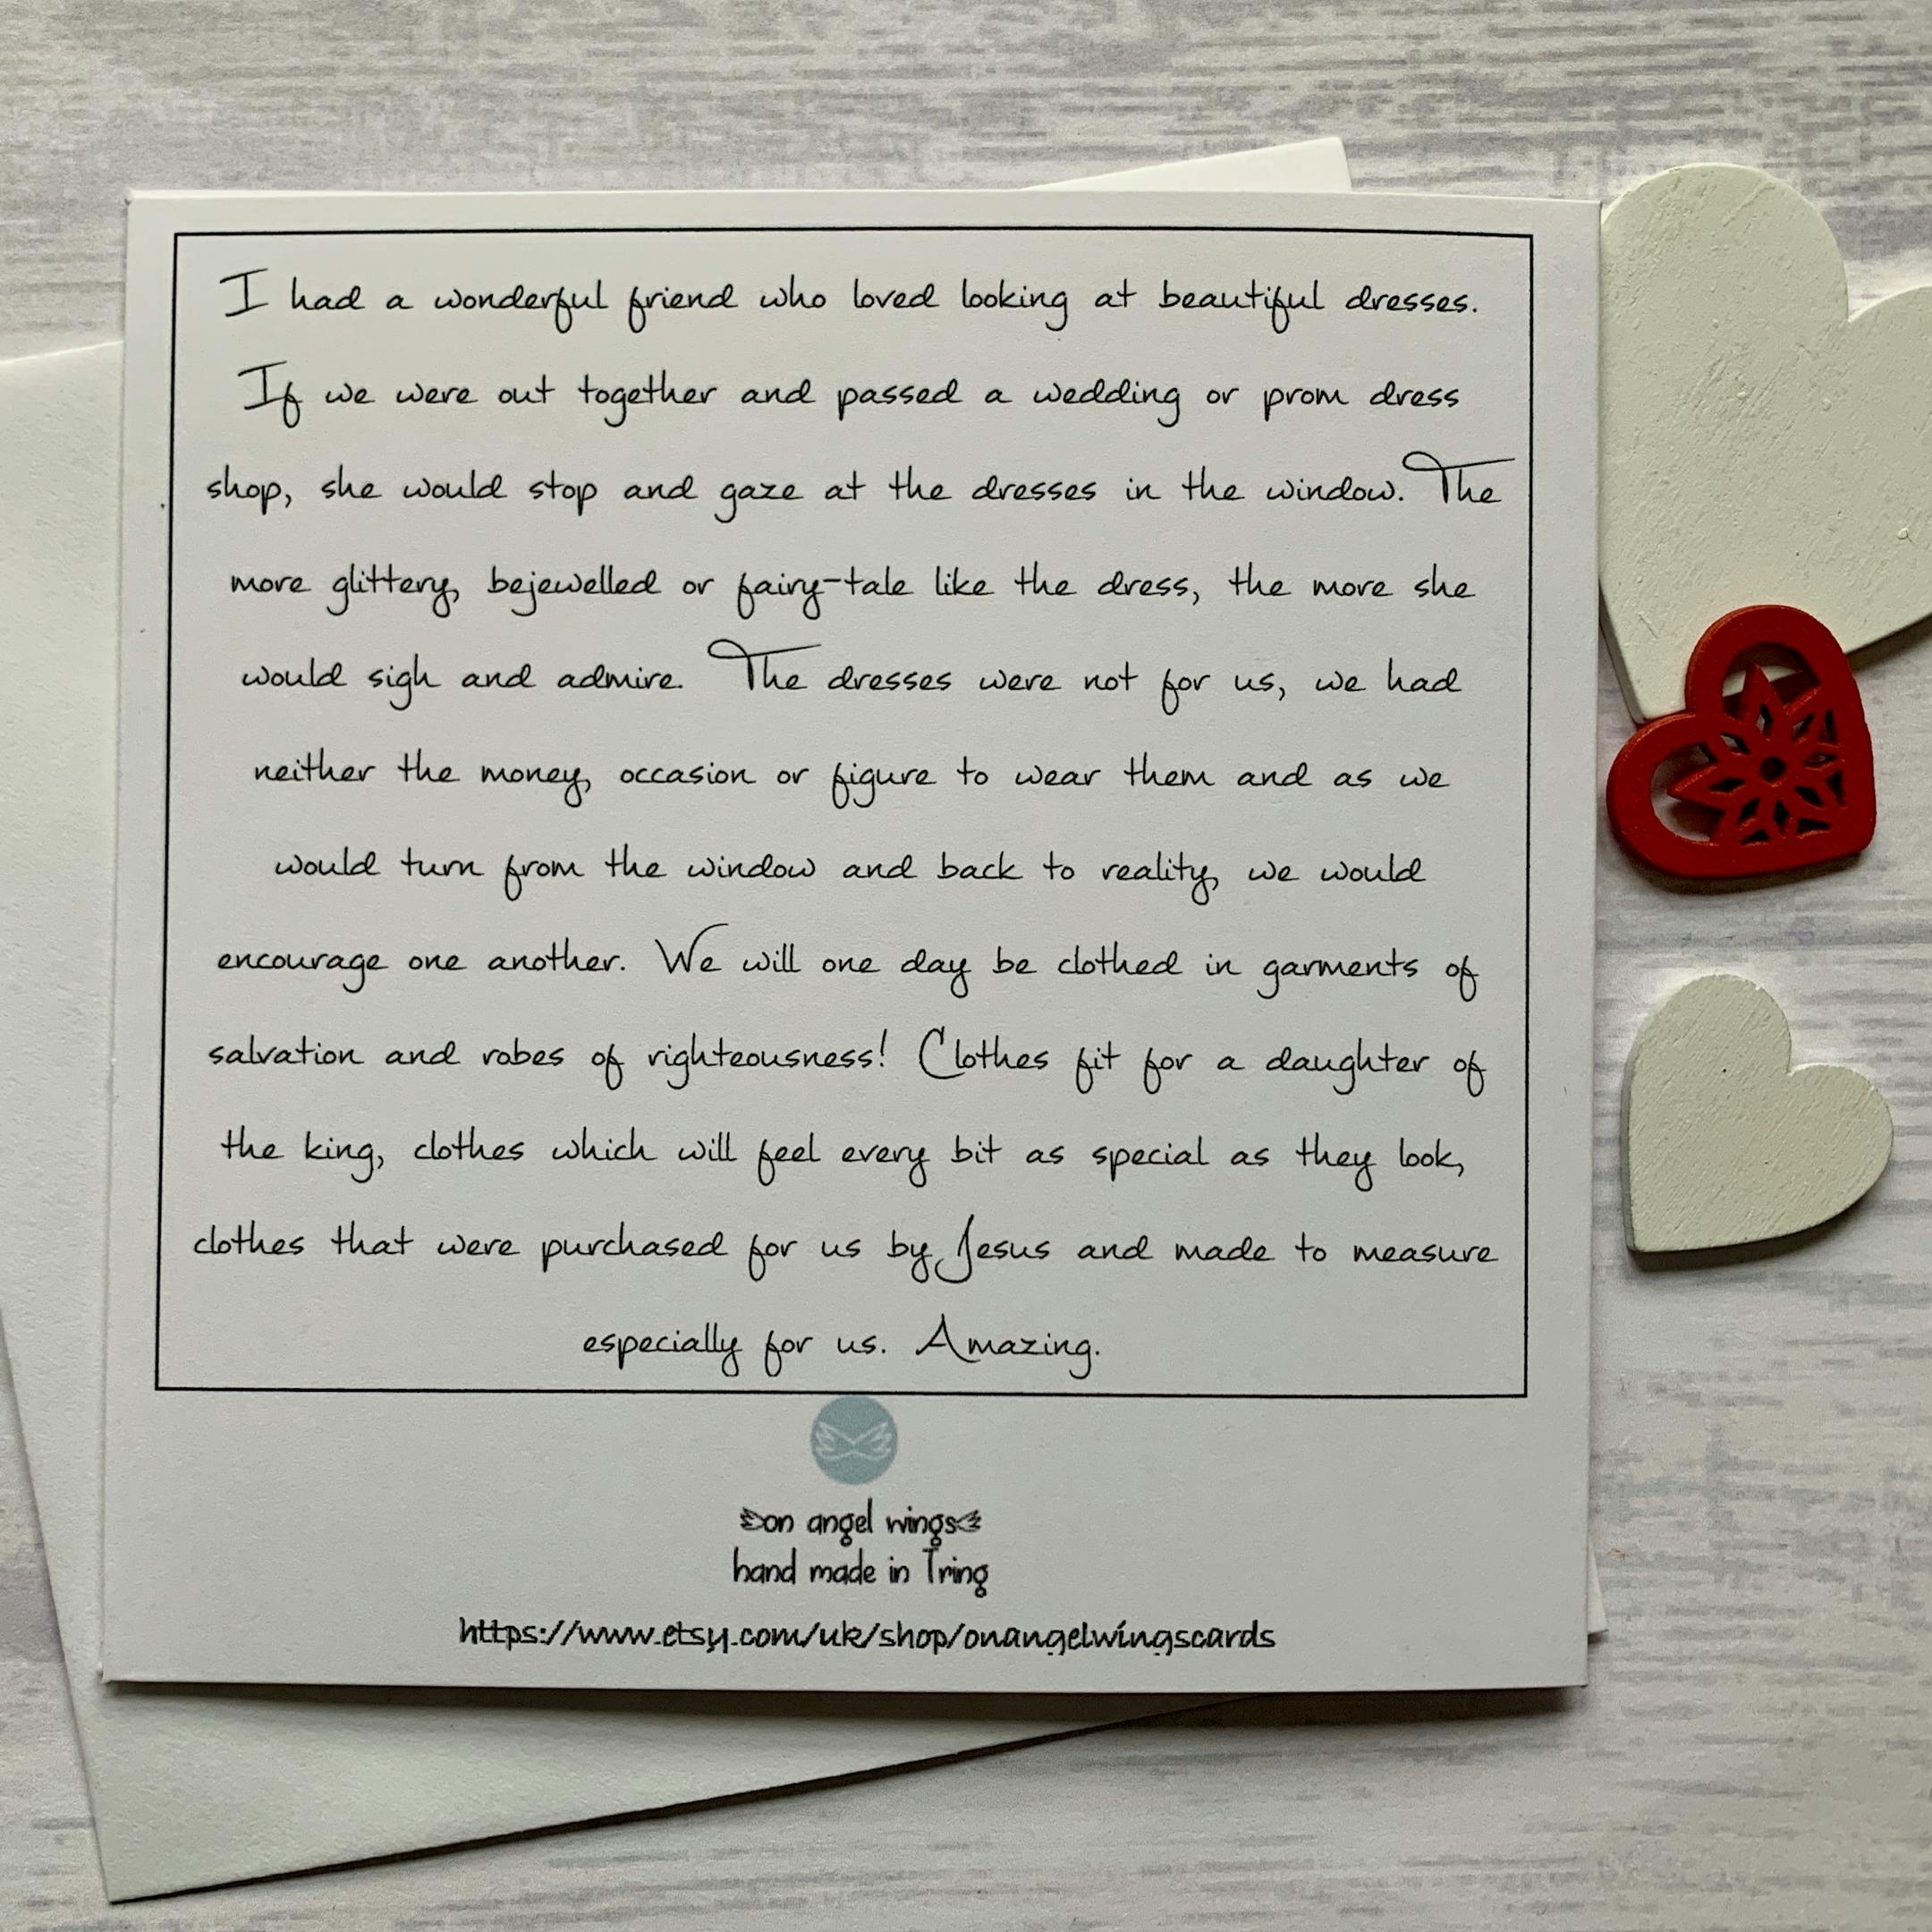 I had a wonderful friend who loved looking at beautiful dresses.
If we were out together and passed a wedding or prom dress
shop, she would stop and gaze at the dresses in the window. The
more glittery, bejewelled or fairy-tale like the dress, the more she
would sigh and admire. The dresses were not for us, we had
neither the money, occasion or figure to wear them and as we
would turn from the window and back to reality, we would
encourage one another. We will one day be clothed in garments of
salvation and robes of righteousness! Clothes fit for a daughter of
the king, clothes which will feel every bit as special as they look,
clothes that were purchased for us by Jesus and made to measure
especially for us. Amazing.
on angel wings
hand made in Tring
https://www.etsy.com/uk/shop/onangelwingscards